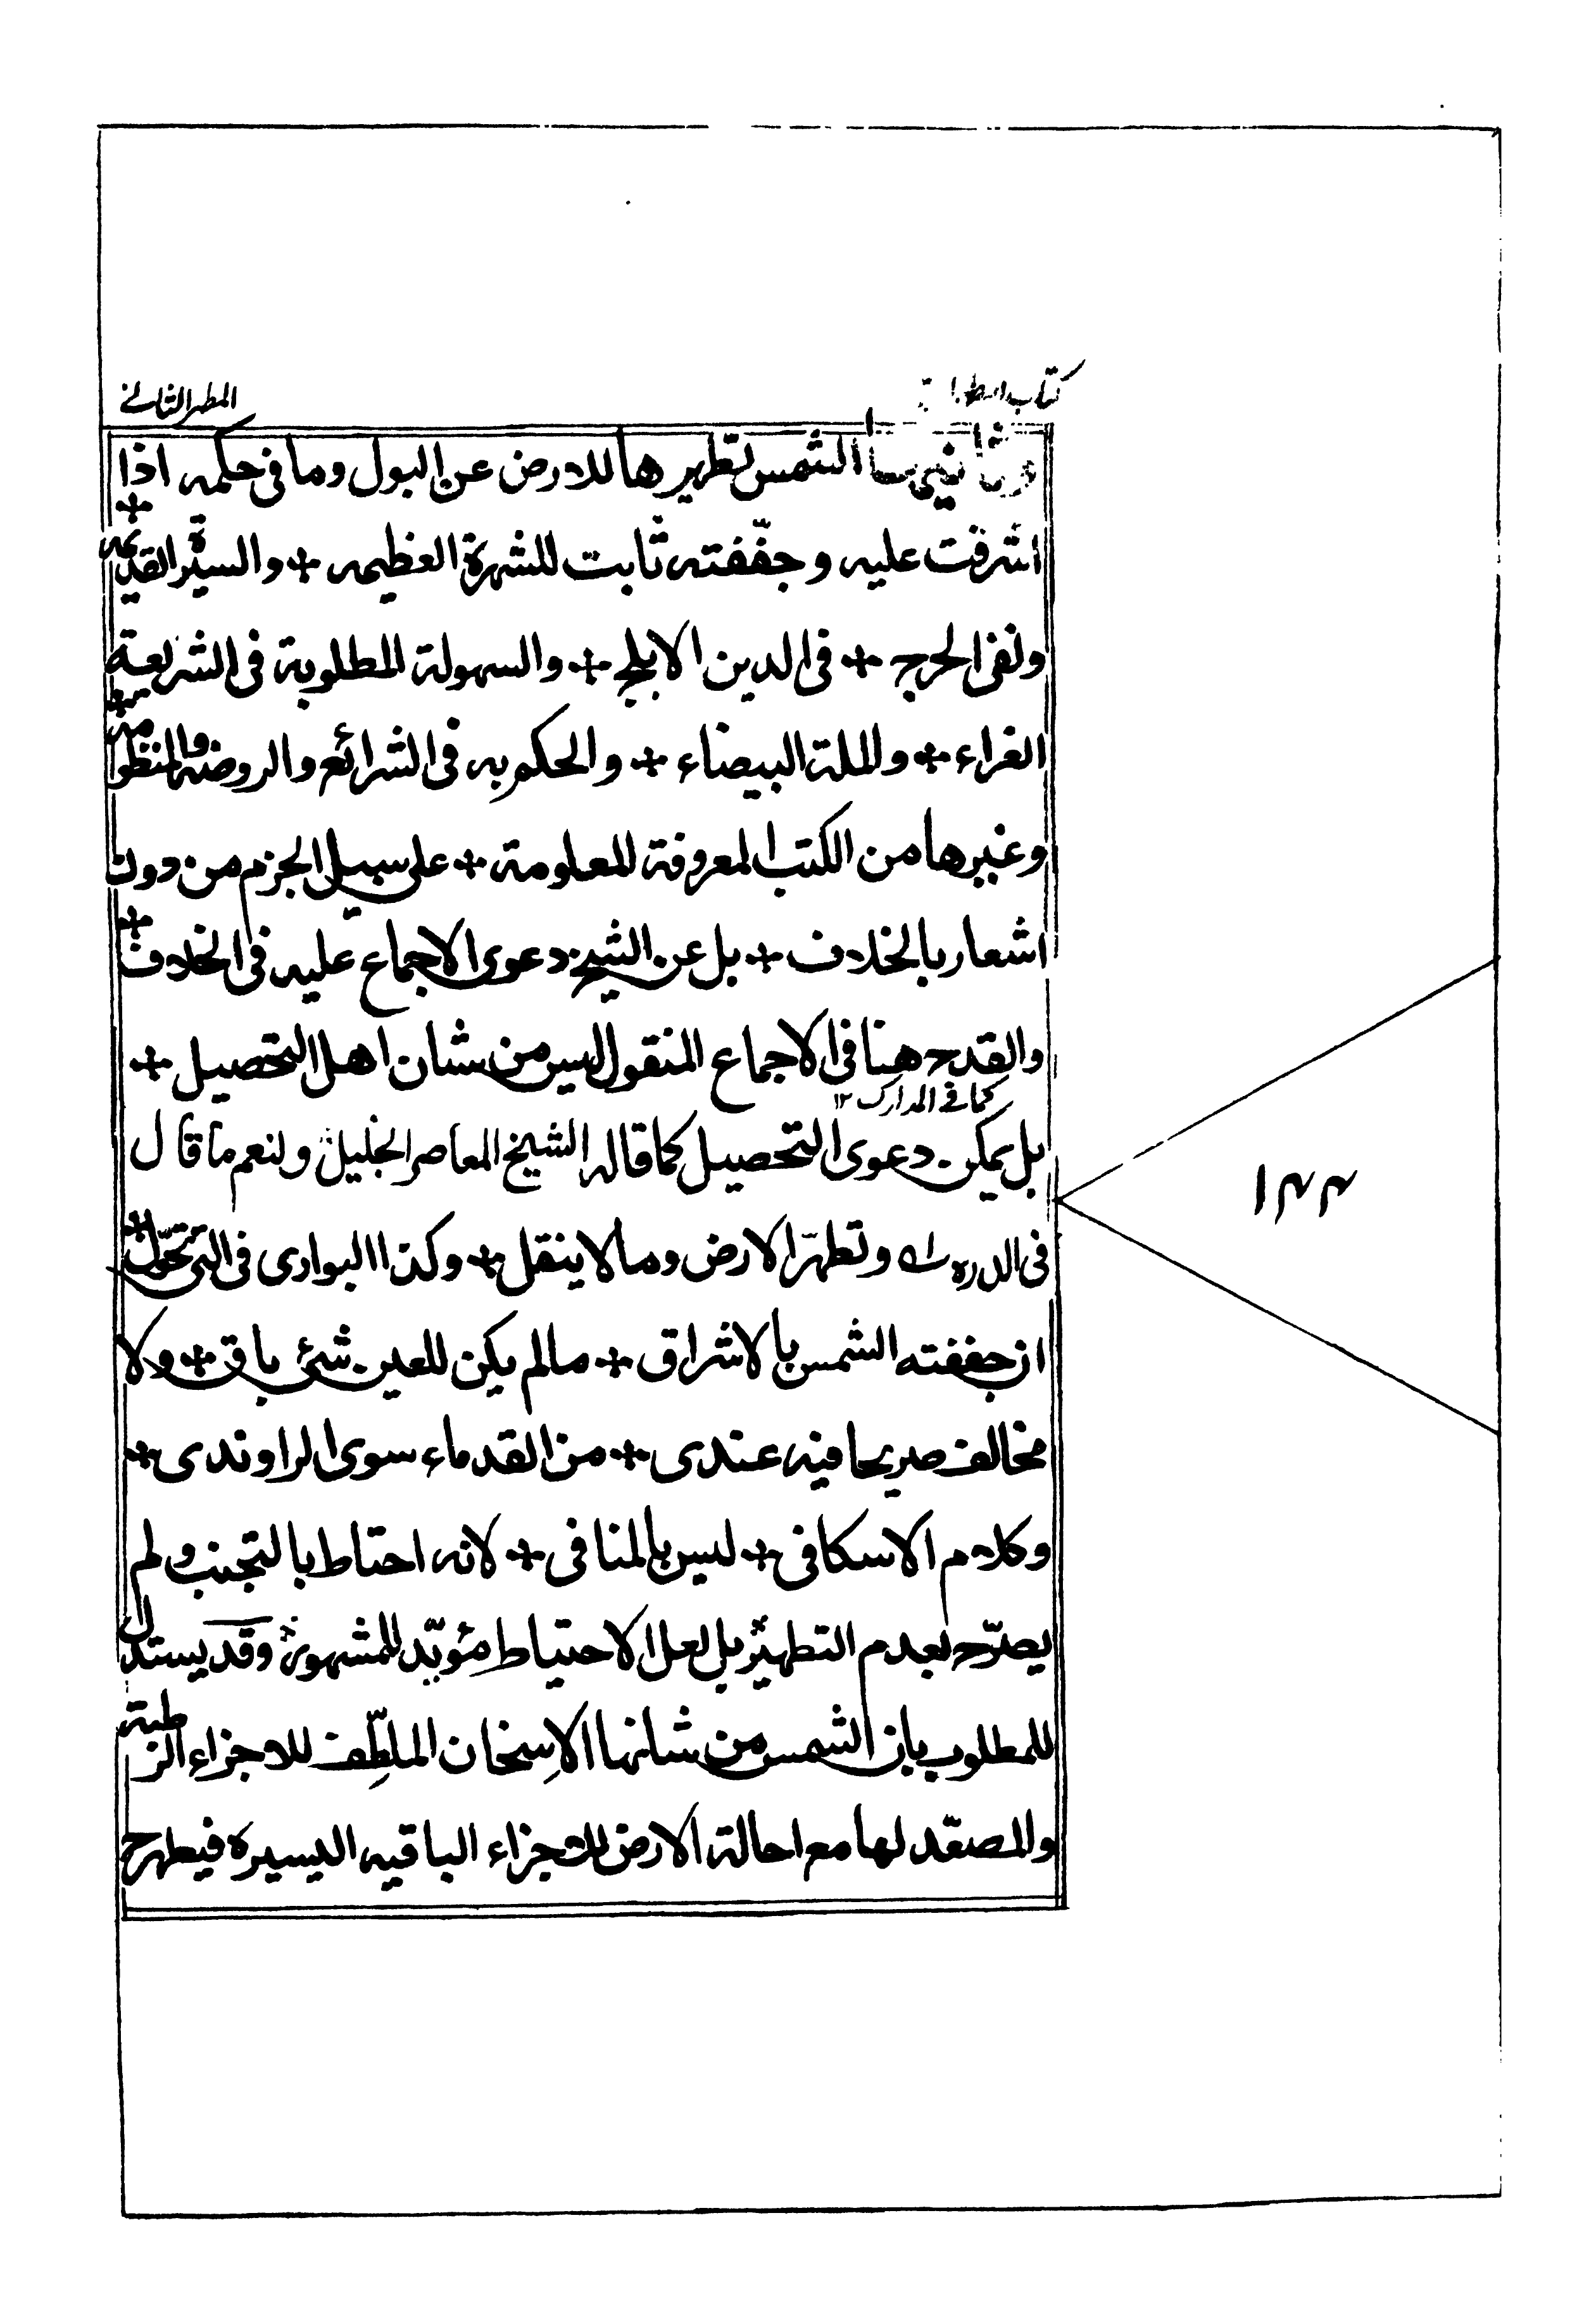 كتاب الطهارة
المطهر الثاني
وثانيها الشمس تطهيرها للارض عن البول وما في حكمه اذا +
اشرقت عليه وجفّفته ثابت للشهرة العظيمه + والسيرة القديمه
ونفي الحرج + في الدين الابلج + والسهولة المطلوبة في الشريعة
الغراء + والملة البيضاء + والحكم به في الشرائع والروضه والمنظومه
وغيرها من الكتب المعروفة المعلومة + على سبيل الجزم من دون
اشعار بالخلاف + بل عن الشيخ دعوى الاجماع عليه في الخلاف +
والقدح هنا في الاجماع المنقول ليس من شان اهل التحصيل +
كما في المدارك ١٢
بل يمكن دعوى التحصيل كما قاله الشيخ المعاصر الجليل ولنعم ما قال
في الدره وتطهّر الارض وما لا ينقل + وكذا البوارى في التي تحوّل +
ان جففته الشمس بالاشراق + ما لم يكن للعين شئ باق + ولا
مخالف صريحا فيه عندى + من القدماء سوى الراوندى +
وكلام الاسكافى + ليس بالمنافى + لانه احتاط بالتجنب ولم
يصرّح بعدم التطهير بل لعل الاحتياط مؤيّد للمشهور وقد يستدل
للمطلوب بان الشمس من شانها الاِسخان الملطّف للاجزاء الرطبة
والمصعّد لها مع احالة الارض للاجزاء الباقيه اليسيره فيطهرح
١٤٤